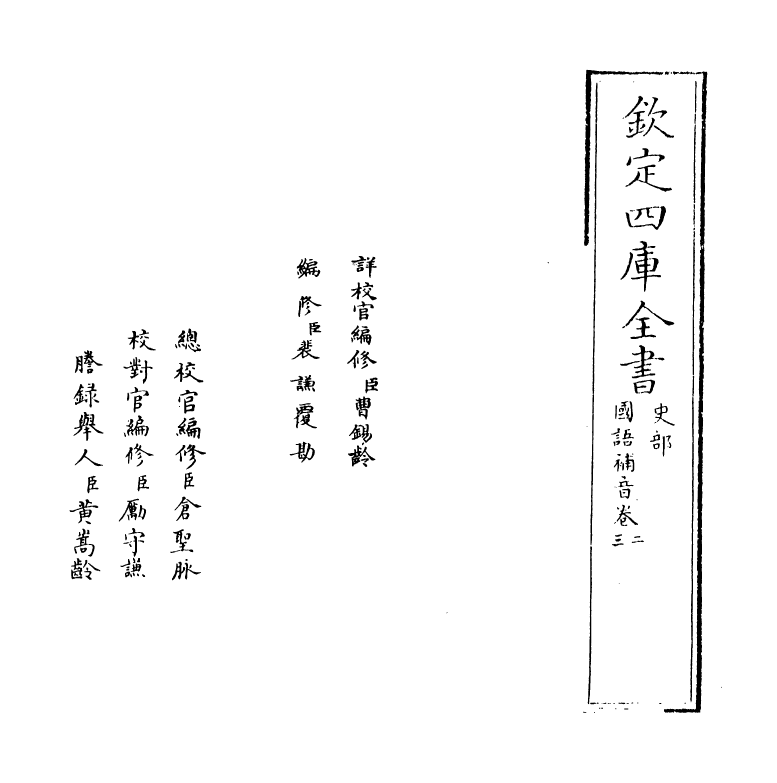 欽定四庫全書
史部
國語補音卷二
三
詳校官編修臣曹錫齡
編修臣裴謙覆勘
總校官編修臣倉聖脉
校對官編修臣勵守謙
謄録舉人臣黃嵩齡